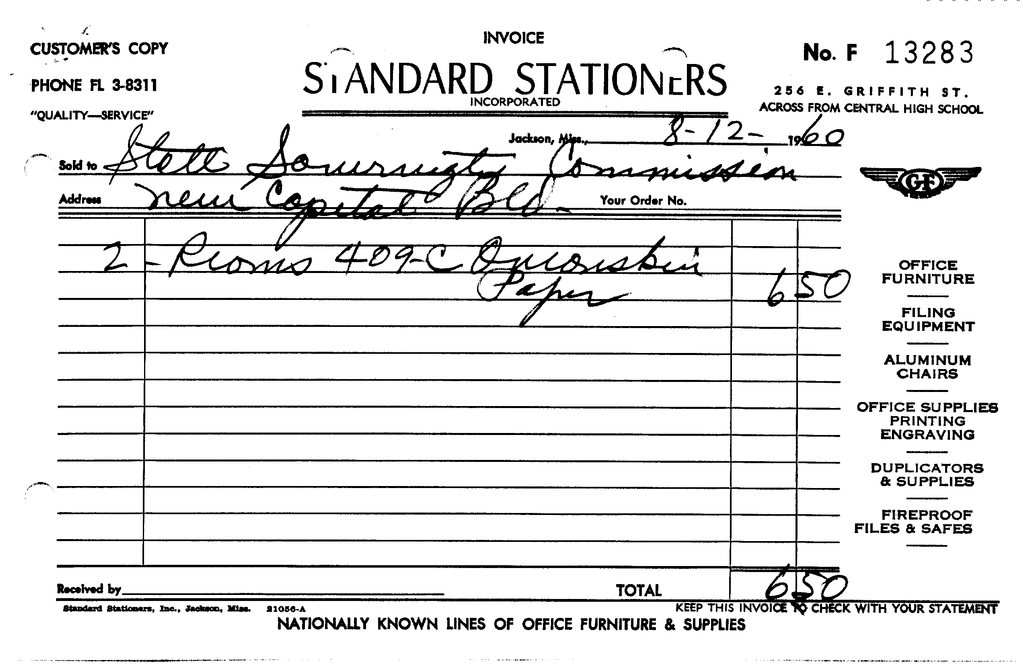 INVOICE
CUSTOMER'S COPY
No. F 13283
PHONE FL 3-8311
STANDARD STATIONERS
INCORPORATED
256 E. GRIFFITH ST.
"QUALITY—SERVICE"
ACROSS FROM CENTRAL HIGH SCHOOL
Jackson, Miss., 8-12- 1960
Sold to State Sovereignty Commission
Address New Capital Bld. Your Order No.
GF
2 - Reams 409-C Onionskin
Paper 6 50
OFFICE
FURNITURE
FILING
EQUIPMENT
ALUMINUM
CHAIRS
OFFICE SUPPLIES
PRINTING
ENGRAVING
DUPLICATORS
& SUPPLIES
FIREPROOF
FILES & SAFES
Received by TOTAL 6 50
Standard Stationers, Inc., Jackson, Miss. 21056-A
KEEP THIS INVOICE TO CHECK WITH YOUR STATEMENT
NATIONALLY KNOWN LINES OF OFFICE FURNITURE & SUPPLIES